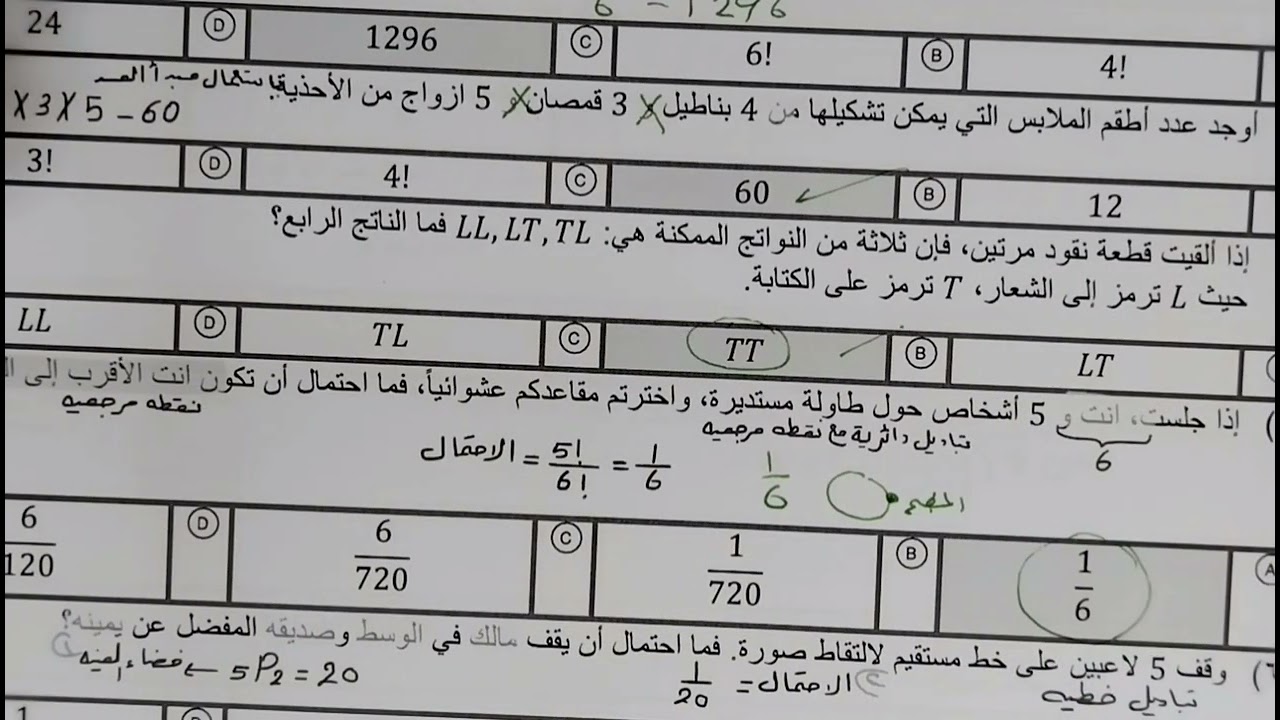 6 – 1296
1296 Ⓒ 6! Ⓑ 4! Ⓓ 24
أوجد عدد أطقم الملابس التي يمكن تشكيلها من 4 بناطيل و 3 قمصان و 5 ازواج من الأحذية باستعمال مبدأ العد
X 3 X 5 – 60
12 Ⓑ 60 Ⓒ 4! Ⓓ 3!
إذا ألقيت قطعة نقود مرتين، فإن ثلاثة من النواتج الممكنة هي: LL, LT, TL فما الناتج الرابع؟
حيث L ترمز إلى الشعار، T ترمز على الكتابة.
LT Ⓑ TT Ⓒ TL Ⓓ LL
إذا جلست، انت و 5 أشخاص حول طاولة مستديرة، واخترتم مقاعدكم عشوائياً، فما احتمال أن تكون انت الأقرب إلى
6 تباديل دائرية مع نقطه مرجعيه نقطه مرجعيه
الاحتمال = 5!/6! = 1/6
1/6
Ⓐ 1/6 Ⓑ 1/720 Ⓒ 6/720 Ⓓ 6/120
وقف 5 لاعبين على خط مستقيم لالتقاط صورة. فما احتمال أن يقف مالك في الوسط وصديقه المفضل عن يمينه؟
تباديل خطيه الاحتمال = 1/20 5P2 = 20 فضاء العينه
1